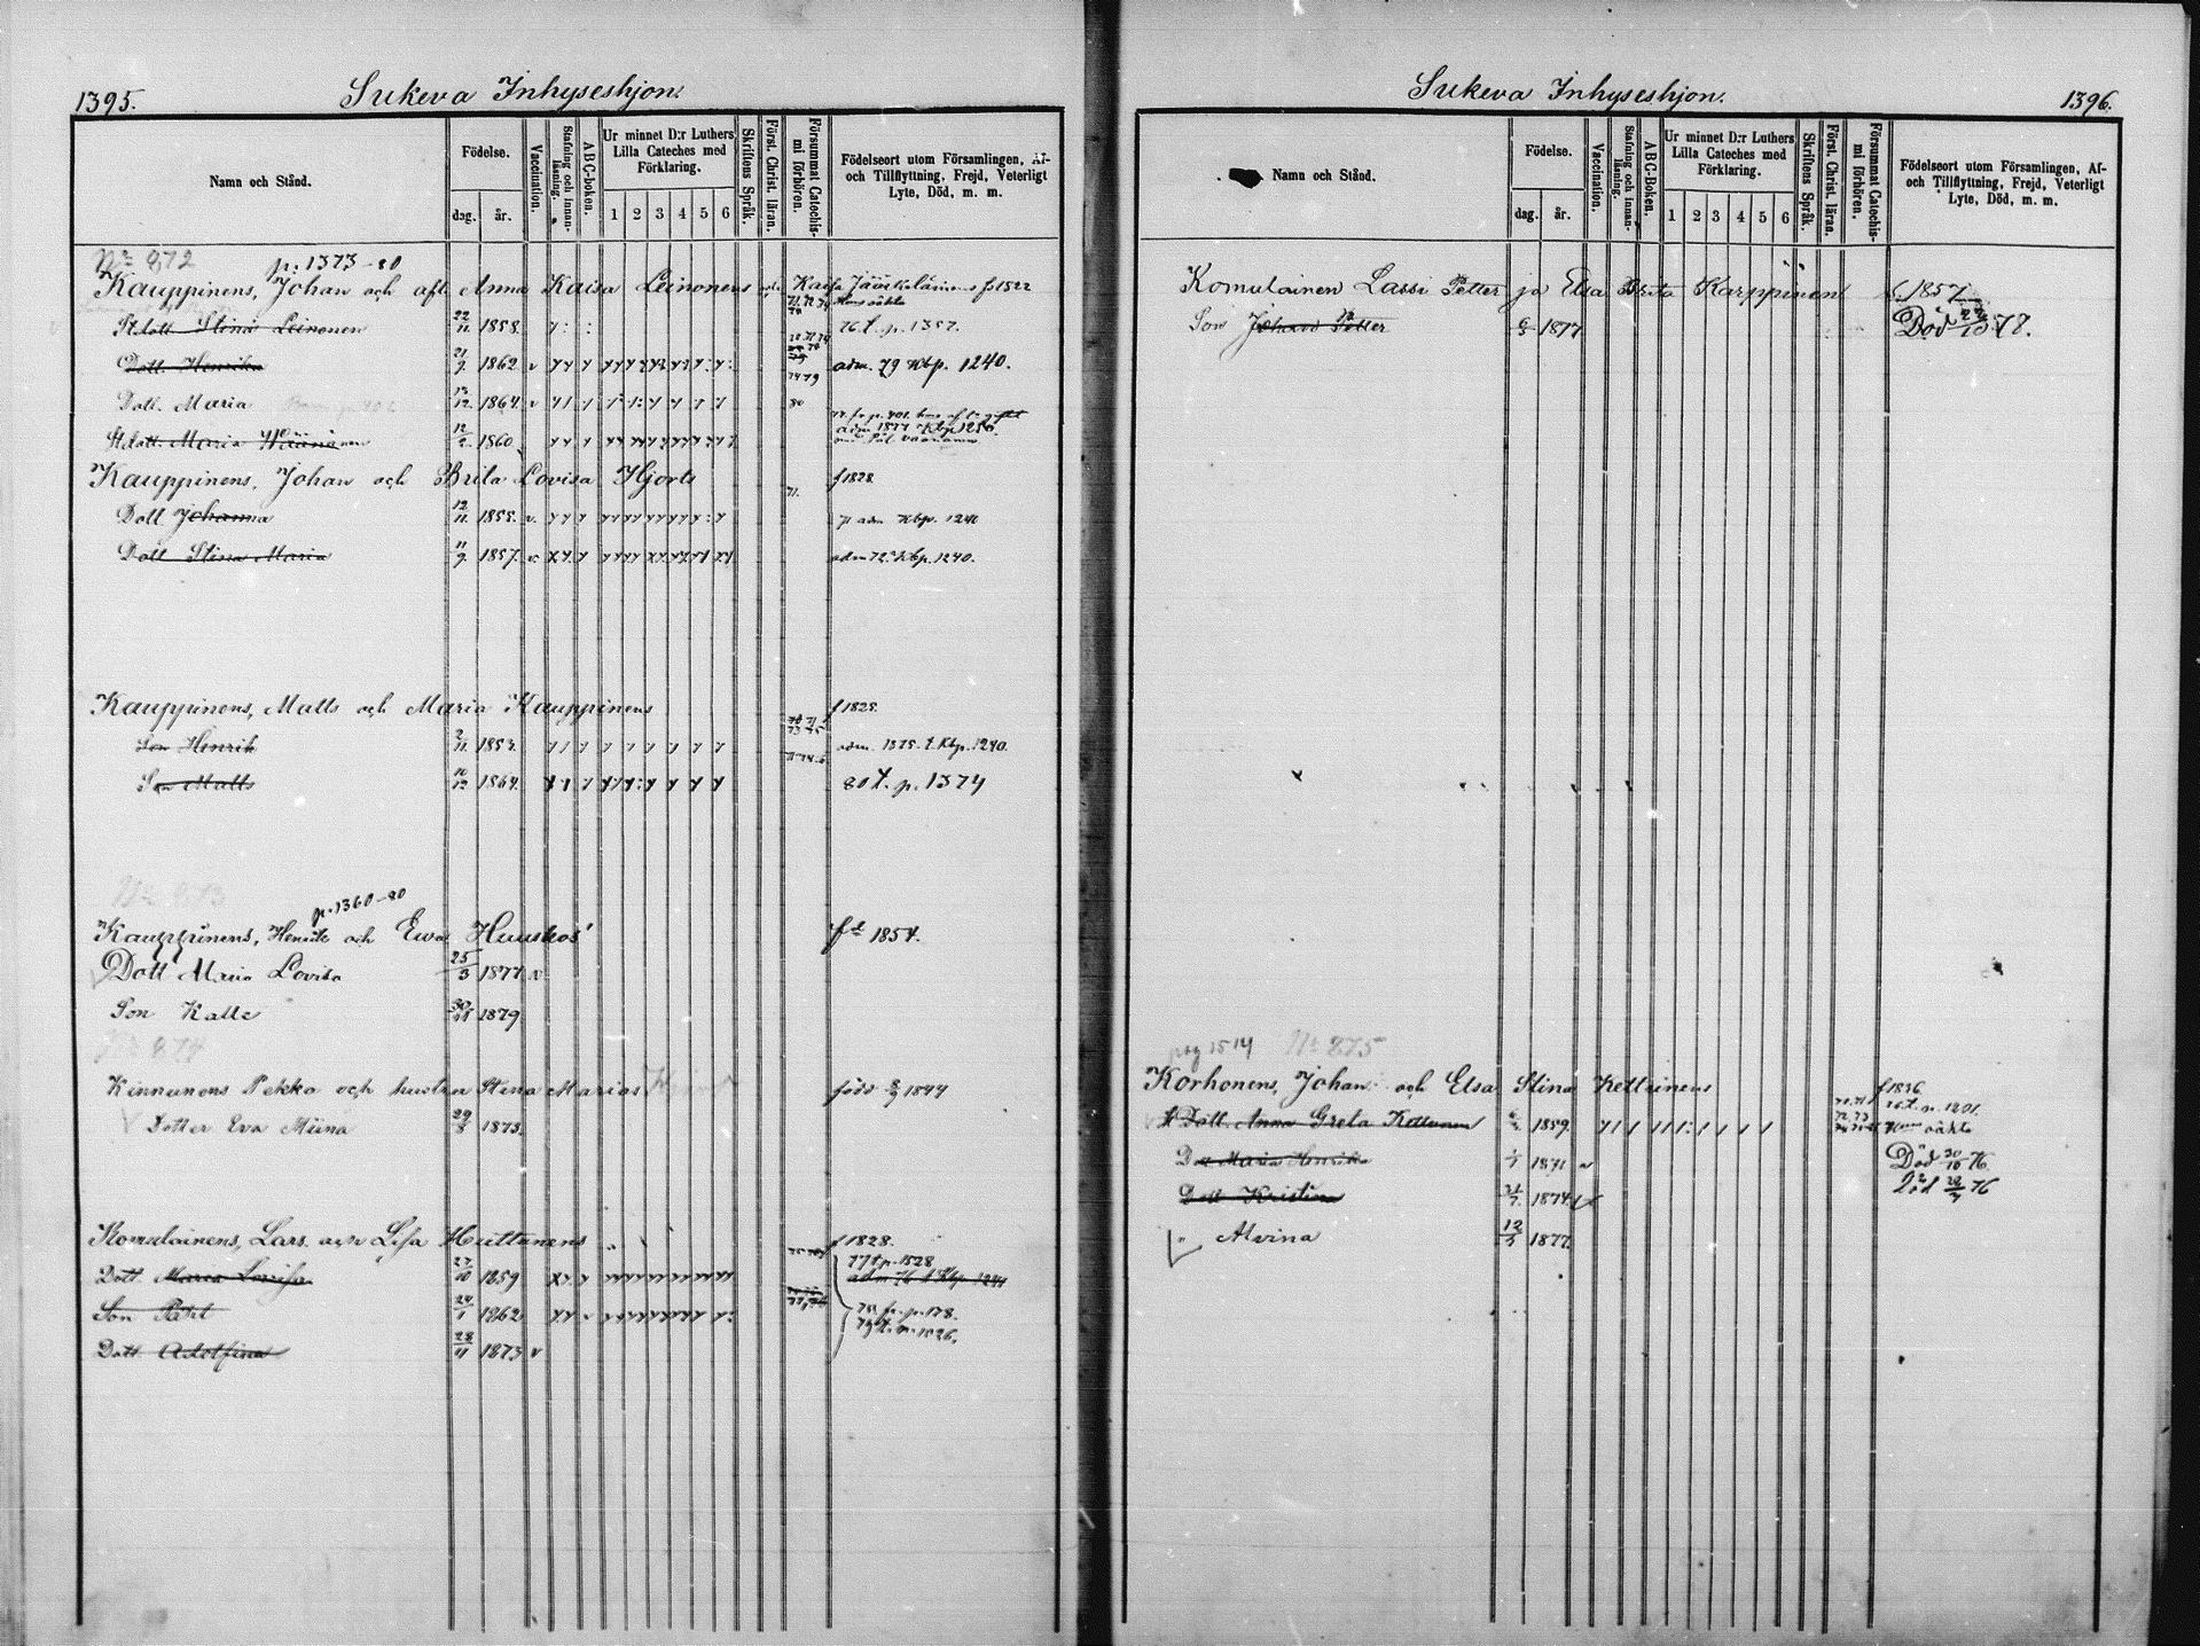 1395.
Sukeva Inhyseshjon.
Namn och Stånd.
Födelse.
dag. år.
Vaccination.
Stafning och innanläsning.
ABC-boken.
Ur minnet D:r Luthers Lilla Cateches med Förklaring.
1 2 3 4 5 6
Skriftens Språk.
Först. Christ. läran.
Försummat Catechismi förhören.
Födelseort utom Församlingen, Af- och Tillflyttning, Frejd, Veterligt Lyte, Död, m. m.
No 872 p. 1373-80
Kauppinens, Johan och afl. Anna Kaisa Leinonens Kaisa f 1822
St.dott Stina Leinonen 22/11 1858. 76 t. p. 1357.
Dott. Henrika 21/9 1862 v adm. 79 Kbp. 1240.
Dott. Maria 12. 1864. v 80
St.dott. Maria 12/2. 1860. adm 1877 Kbp 1250.
Kauppinens, Johan och Brita Lovisa Hjorts f 1828
Dott Johanna 12/11. 1855. v. 71. 71 adm Kbp. 1240
Dott Stina Maria 11/9. 1857. v. adm 72 Kbp. 1240.
Kauppinens, Matts och Maria Kauppinens f 1828.
Son Henrik 2/11. 1853. adm. 1875. t. Kbp. 1240.
Son Matts 10/12 1864. 80 t. p. 1374
No 873
p. 1360-80
Kauppinens, Henrik och Eva Huuskos fd 1854.
Dott Maria Lovisa 25/3 1877 v
Son Kalle 30/11 1879
No 874
Kinnunens Pekka och hustru Stina Marias född 1844
Dotter Eva Miina 29/8 1873.
Komulainens, Lars och Lisa Huttunens f 1828.
Dott Maria Lovisa 27/10 1859 77 t p. 1528
adm 76 t Kbp. 1244
Son Pähl 24/1 1862 78 fr. p. 178.
79 t. p. 1526.
Dott Adolfina 28/11 1873 v
Sukeva Inhyseshjon.
1396.
Namn och Stånd.
Födelse.
dag. år.
Vaccination.
Stafning och innanläsning.
ABC-boken.
Ur minnet D:r Luthers Lilla Cateches med Förklaring.
1 2 3 4 5 6
Skriftens Språk.
Först. Christ. läran.
Försummat Catechismi förhören.
Födelseort utom Församlingen, Af- och Tillflyttning, Frejd, Veterligt Lyte, Död, m. m.
Komulainen Lassi Petter ja Elsa Brita Karppinen f. 1857
Son Johan Petter 1877 Död 78.
pag 1514 No 875
Korhonens, Johan och Elsa Stina Kettuinens f 1836
St Dott. Anna Greta Kettunen 1859. 76 t. p. 1201.
Dot Maria Henrika 1871 v Död 30/10 76.
Dott Kristina 1874. Död 76
" Alvina 12/5 1877.